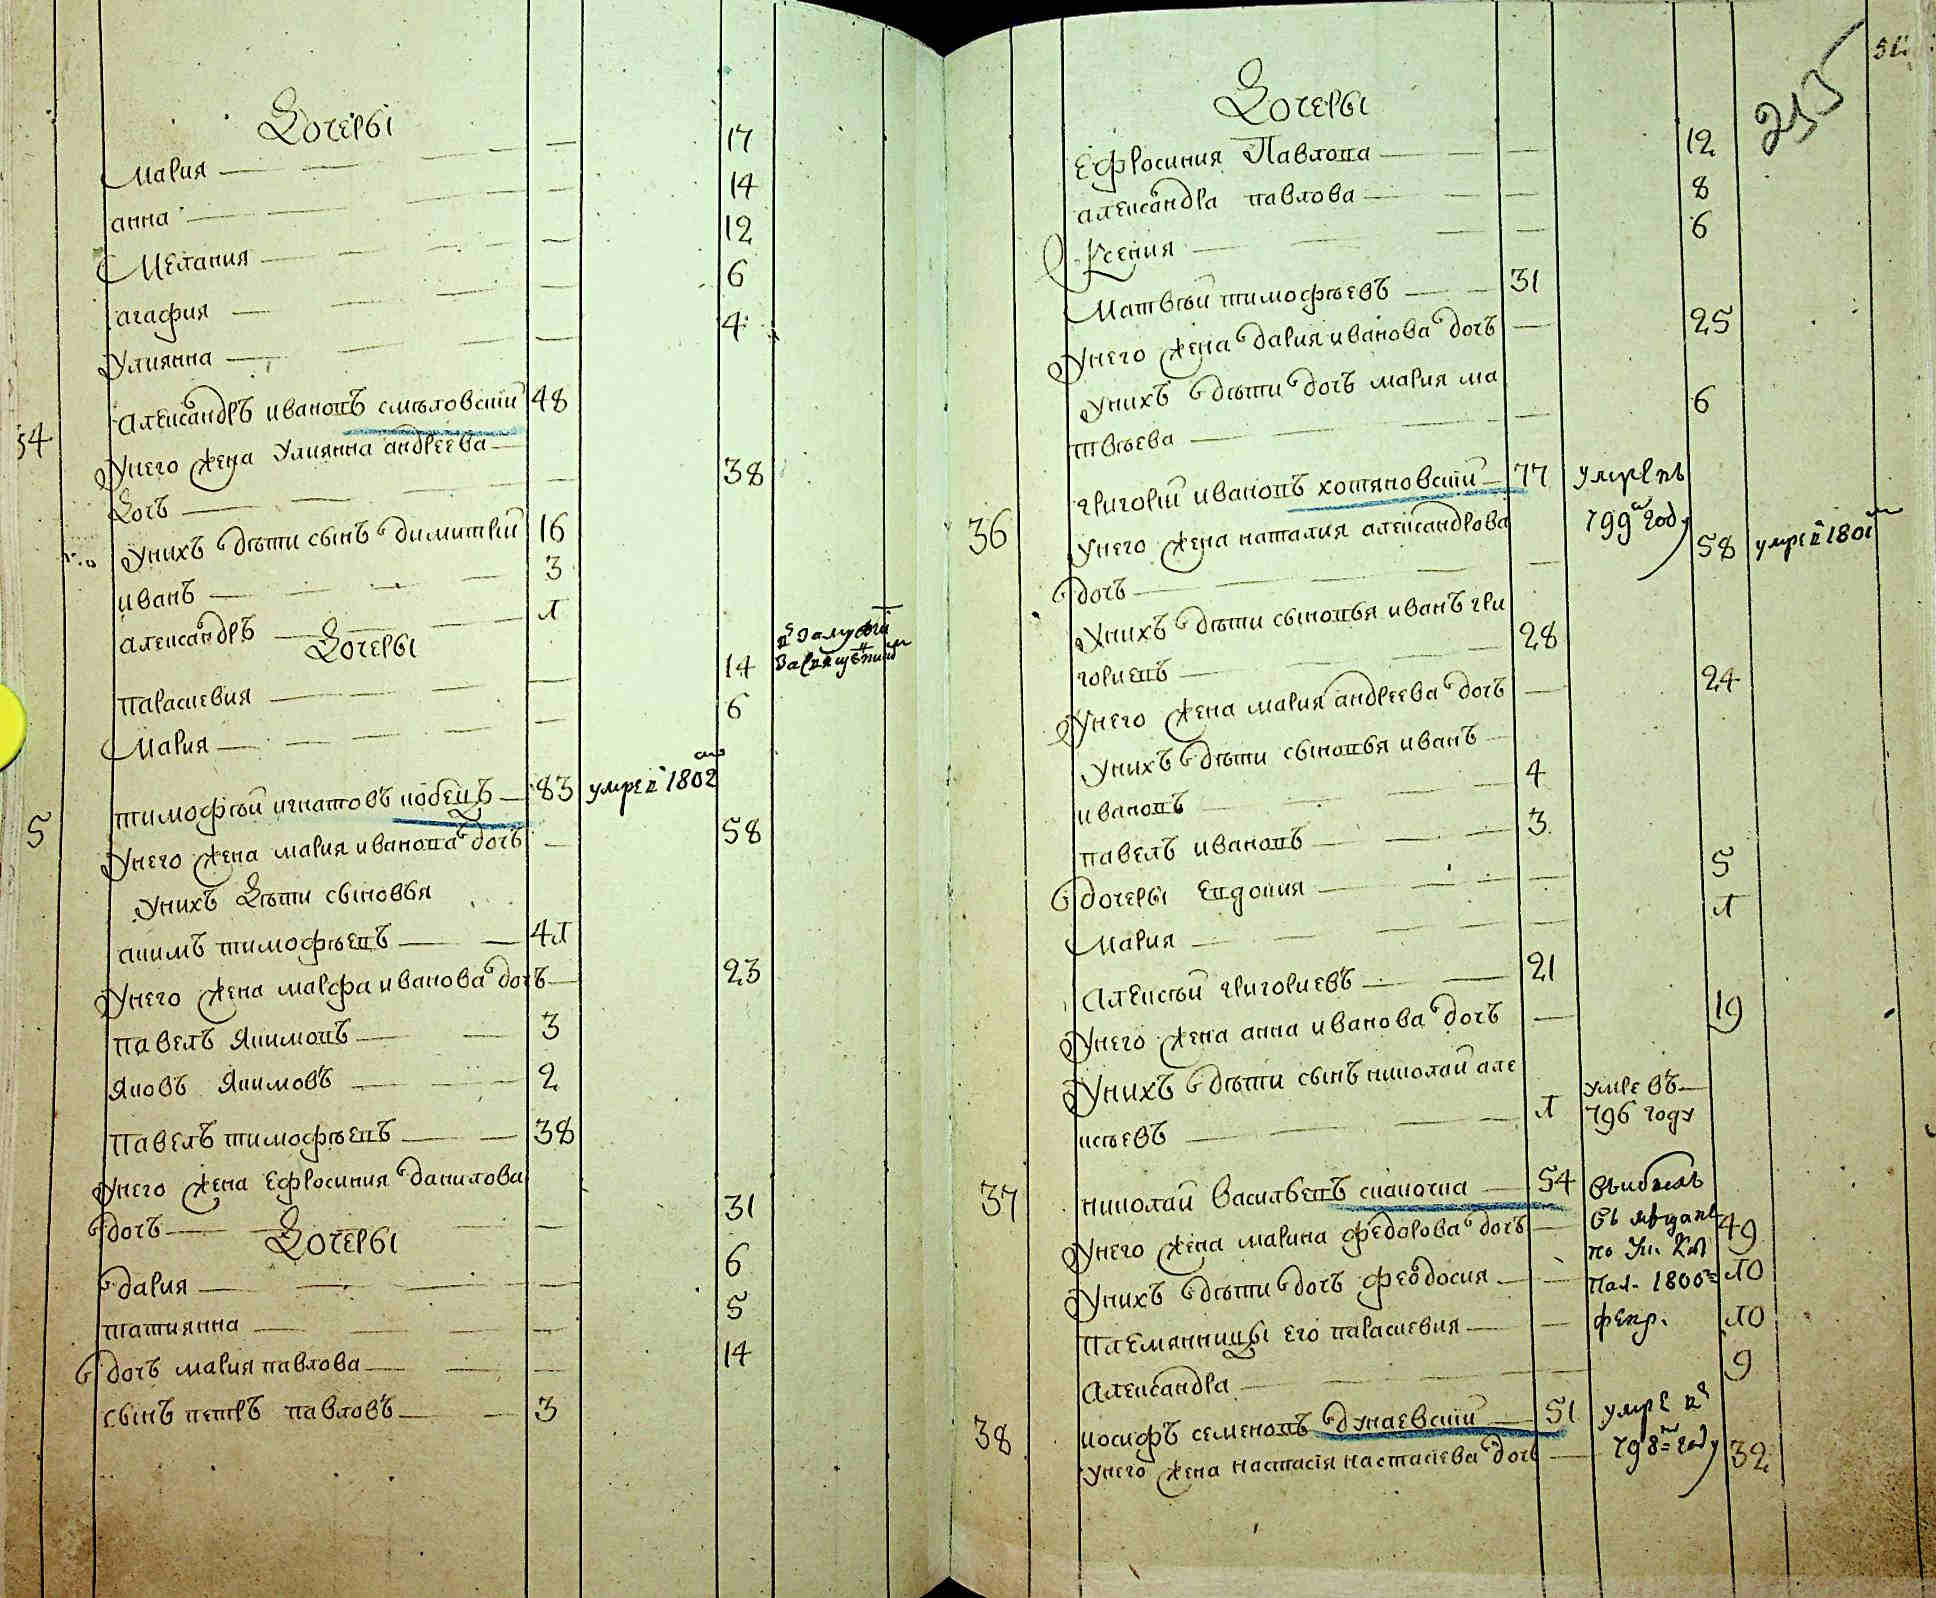 Дочеры
Мария — 17
анна — 14
Мелания — 12
агафия — 6
Улиянна — 4
34 Александръ ивановъ смѣловский 48
Унего жена Улиянна андреева
Дочъ — 38
Унихъ дѣти сынъ димитрий 16
иванъ — 3
александръ — 1
Дочеры
параскевия — 14
Мария — 6
5 тимофѣй игнатовъ кобецъ — 83 умре в 1802
Унего жена мария иванова дочъ — 58
Унихъ Дѣти сыновья
акимъ тимофѣевъ — 41
Унего жена марфа иванова дочъ — 23
павелъ Якимовъ — 3
Яковъ Якимовъ — 2
Павелъ тимофѣевъ — 38
Унего жена Ефросиния данилова
дочъ — 31
Дочеры
дария — 6
татиянна — 5
дочъ мария павлова — 14
сынъ петръ павловъ — 3
215
Дочеры
Ефросиния Павлова — 12
александра павлова — 8
Ксения — 6
Матвѣй тимофѣевъ — 31
Унего жена дария иванова дочъ — 25
Унихъ дѣти дочъ мария ма
твѣева — 6
36 григорий ивановъ хотяновский — 77 умре въ
799м году
Унего жена наталия александрова
дочъ — 58 умре в 1801м
Унихъ дѣти сыновья иванъ гри
гориевъ — 28
Унего жена мария андреева дочъ — 24
Унихъ дѣти сыновья иванъ
ивановъ — 4
павелъ ивановъ — 3
дочеры Евдокия — 5
Мария — 1
Алексѣй григориевъ — 21
Унего жена анна иванова дочъ — 19
Унихъ дѣти сынъ николай але
ксѣевъ — 1 умре въ
796 году
37 николай Васильевъ скакочка — 54 выбылъ
Унего жена марина федорова дочъ — 49
Унихъ дѣти дочъ феодосия — 10
Племянницы его параскевия — 10
Александра — 9
въ мѣщане
по Ук. Каз
Пал. 1800
февр.
38 иосифъ семеновъ дунаевский — 51 умре въ
798м году
Унего жена настасія настасиева дочъ — 32